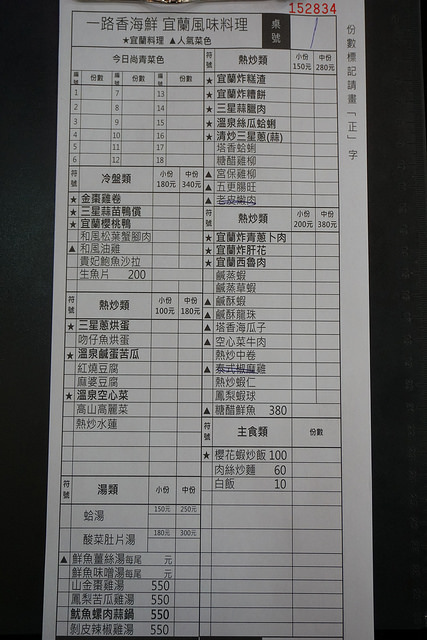 152834
一路香海鮮 宜蘭風味料理
★宜蘭料理 ▲人氣菜色
桌號
份數標記請畫「正」字
今日尚青菜色
編號 份數 編號 份數 編號 份數
1 7 13
2 8 14
3 9 15
4 10 16
5 11 17
6 12 18
符號 冷盤類 小份 180元 中份 340元
★ 金棗雞卷
★ 三星蒜苗鴨賞
★ 宜蘭櫻桃鴨
和風松葉蟹腳肉
▲ 和風油雞
貴妃鮑魚沙拉
生魚片 200
符號 熱炒類 小份 100元 中份 180元
★ 三星蔥烘蛋
吻仔魚烘蛋
★ 溫泉鹹蛋苦瓜
紅燒豆腐
麻婆豆腐
★ 溫泉空心菜
高山高麗菜
熱炒水蓮
符號 湯類 小份 中份
蛤湯 150元 250元
酸菜肚片湯 180元 300元
▲ 鮮魚薑絲湯每尾 元
鮮魚味噌湯每尾 元
山金棗雞湯 550
鳳梨苦瓜雞湯 550
魷魚螺肉蒜鍋 550
剝皮辣椒雞湯 550
符號 熱炒類 小份 150元 中份 280元
★ 宜蘭炸糕渣
★ 宜蘭炸糟餅
★ 三星蒜臘肉
★ 溫泉絲瓜蛤蜊
★ 清炒三星蔥(蒜)
塔香蛤蜊
糖醋雞柳
▲ 宮保雞柳
▲ 五更腸旺
▲ 老皮嫩肉
符號 熱炒類 小份 200元 中份 380元
★ 宜蘭炸青蔥卜肉
★ 宜蘭炸肝花
★ 宜蘭西魯肉
鹹蒸蝦
鹹蒸草蝦
▲ 鹹酥蝦
▲ 鹹酥龍珠
▲ 塔香海瓜子
▲ 空心菜牛肉
熱炒中卷
▲ 泰式椒麻雞
熱炒蝦仁
鳳梨蝦球
▲ 糖醋鮮魚 380
符號 主食類 份數
★ 櫻花蝦炒飯 100
肉絲炒麵 60
白飯 10